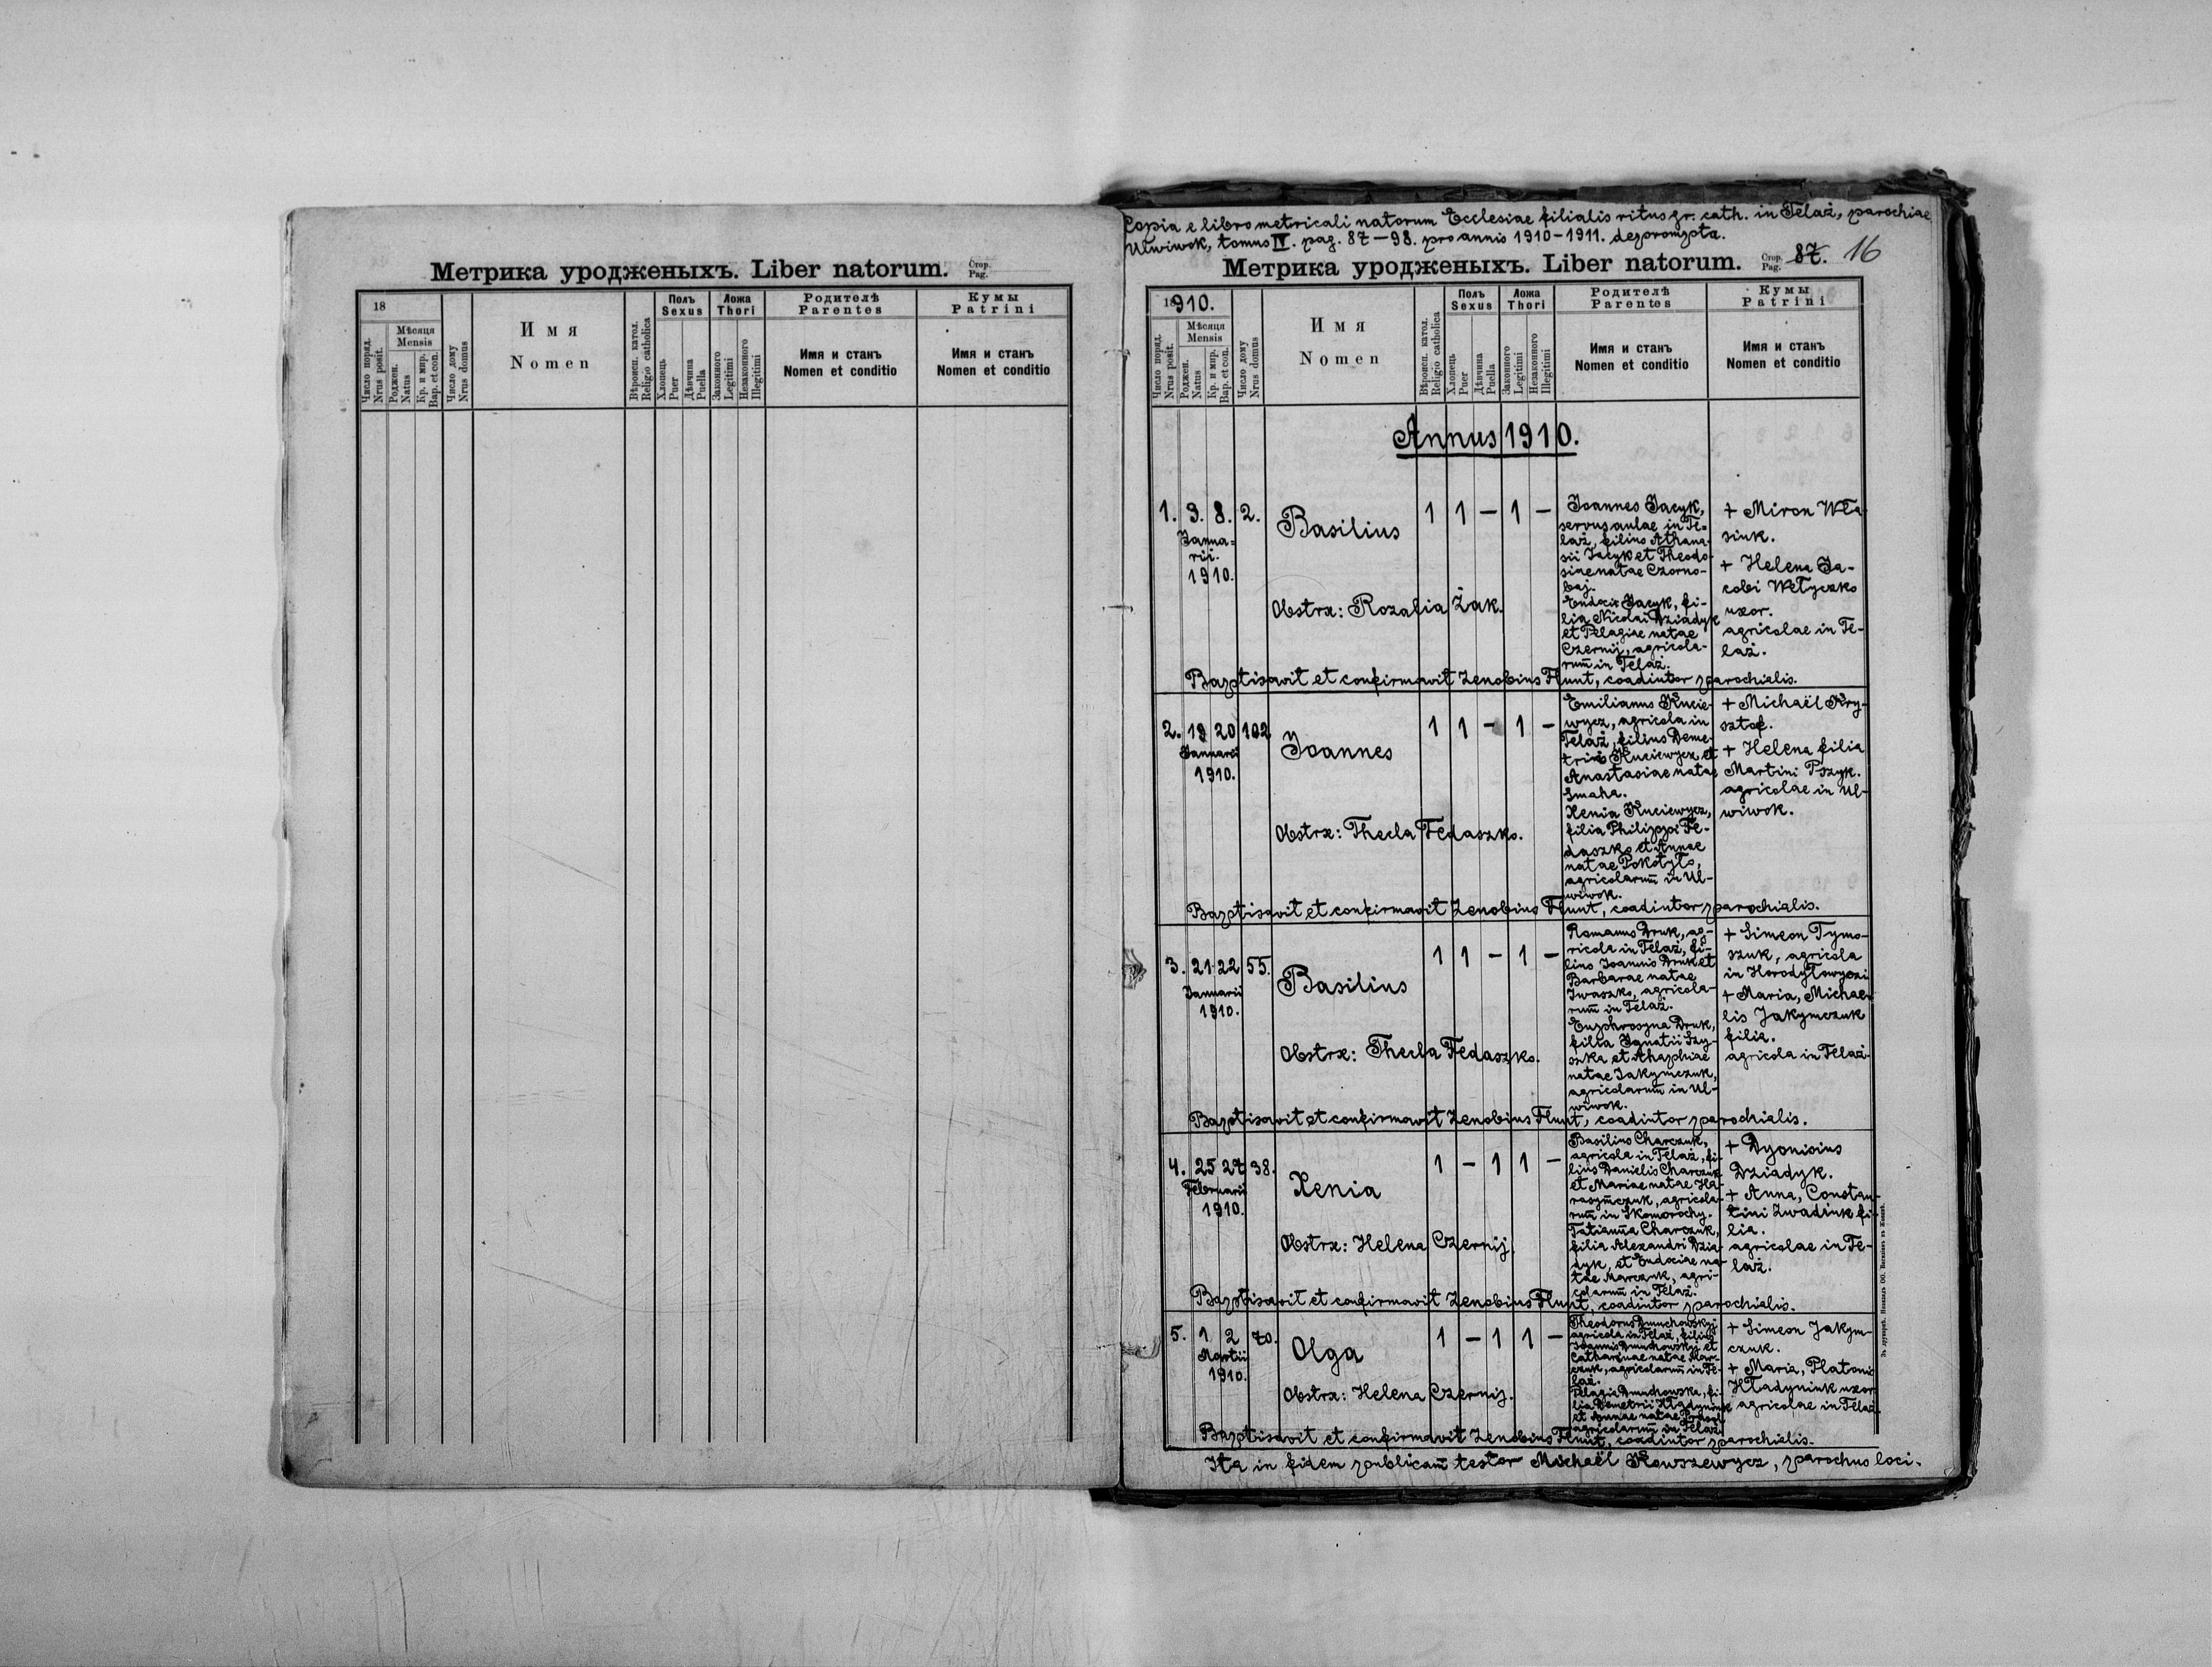 Метрика уродженыхъ. Liber natorum. Стор. Pag.
18
Число поряд. Nrus posit.
Мѣсяця Mensis
Роджен. Natus
Кр. и мир. Bap. et con.
Число дому Nrus domus
Имя
Nomen
Вѣроисп. катол. Religio catholica
Полъ Sexus
Хлопець Puer
Дѣвчина Puella
Ложа Thori
Законного Legitimi
Незаконного Illegitimi
Родителѣ
Parentes
Имя и станъ
Nomen et conditio
Кумы
Patrini
Имя и станъ
Nomen et conditio
Copia e libro metricali natorum Ecclesiae filialis ritus gr. cath. in Telaż, parochiae
Ulwiwok, tomus IV. pag. 87-98. pro annis 1910-1911. deprompta.
Метрика уродженыхъ. Liber natorum. Стор. Pag. 87. 16
1910.
Число поряд. Nrus posit.
Мѣсяця Mensis
Роджен. Natus
Кр. и мир. Bap. et con.
Число дому Nrus domus
Имя
Nomen
Вѣроисп. катол. Religio catholica
Полъ Sexus
Хлопець Puer
Дѣвчина Puella
Ложа Thori
Законного Legitimi
Незаконного Illegitimi
Родителѣ
Parentes
Имя и станъ
Nomen et conditio
Кумы
Patrini
Имя и станъ
Nomen et conditio
Annus 1910.
1. 3. 8. 2.
Janua-
rii.
1910.
Basilius
1 1 - 1 -
Obstrx: Rozalia Żak.
Joannes Jacyk,
servus aulae in Te-
laż, filius Athana-
sii Jacyk et Theodo-
siae natae Czorno-
baj.
Eudocia Jacyk, fi-
lia Nicolai Dziadyk
et Pelagiae natae
Czernij, agricola-
rum in Telaż.
+ Miron Wła-
siuk.
+ Helena Ja-
cobi Wełyczko
uxor.
agricolae in Te-
laż.
Baptisavit et confirmavit Zenobius Flunt, coadiutor parochialis.
2. 19 20 102
Januarii
1910.
Joannes
1 1 - 1 -
Obstrx: Thecla Fedaszko.
Emilianus Kucie-
wycz, agricola in
Telaż, filius Deme-
trii Kuciewycz et
Anastasiae natae
Smaha.
Xenia Kuciewycz,
filia Philippi Fe-
daszko et Annae
natae Pokotyło,
agricolarum in Ul-
wiwok.
+ Michaël Kry-
sztof.
+ Helena filia
Martini Pszyk.
agricolae in Ul-
wiwok.
Baptisavit et confirmavit Zenobius Flunt, coadiutor parochialis.
3. 21 22 55.
Januarii
1910.
Basilius
1 1 - 1 -
Obstrx: Thecla Fedaszko.
Romanus Druk, ag-
ricola in Telaż, fi-
lius Joannis Druk et
Barbarae natae
Iwaszko, agricola-
rum in Telaż.
Euphrosyna Druk,
filia Ignatii Szy-
szka et Ahaphiae
natae Jakymczuk,
agricolarum in Ul-
wiwok.
+ Simeon Tymo-
szuk, agricola
in Horodyłowyczi
+ Maria, Michae-
lis Jakymczuk
filia.
agricola in Telaż.
Baptisavit et confirmavit Zenobius Flunt, coadiutor parochialis.
4. 25 27 38.
Februarii
1910.
Xenia
1 - 1 1 -
Obstrx: Helena Czernij.
Basilius Charczuk,
agricola in Telaż, fi-
lius Danielis Charczuk
et Mariae natae Ha-
rasymczuk, agricola-
rum in Skomorochy.
Tatianna Charczuk,
filia Alexandri Dzia-
dyk, et Eudociae na-
tae Marczuk, agri-
colarum in Telaż.
+ Dyonisius
Dziadyk.
+ Anna, Constan-
tini Zwadiuk fi-
lia.
agricolae in Te-
laż.
Baptisavit et confirmavit Zenobius Flunt, coadiutor parochialis.
5. 1 2 70.
Martii
1910.
Olga
1 - 1 1 -
Obstrx: Helena Czernij.
Theodorus Dmuchowskyj
agricola in Telaż, filius
Joannis Dmuchowskyj et
Catharinae natae Mar-
czuk, agricolarum in Te-
laż.
Pelagia Dmuchowska, fi-
lia Demetrii Hładyniuk
et Annae natae
agricolarum in Telaż.
+ Simeon Jakym-
czuk.
+ Maria, Platonis
Hładyniuk uxor
agricolae in Telaż.
Baptisavit et confirmavit Zenobius Flunt, coadiutor parochialis.
Ita in fidem publicam testor Michaël Rowszewycz, parochus loci.